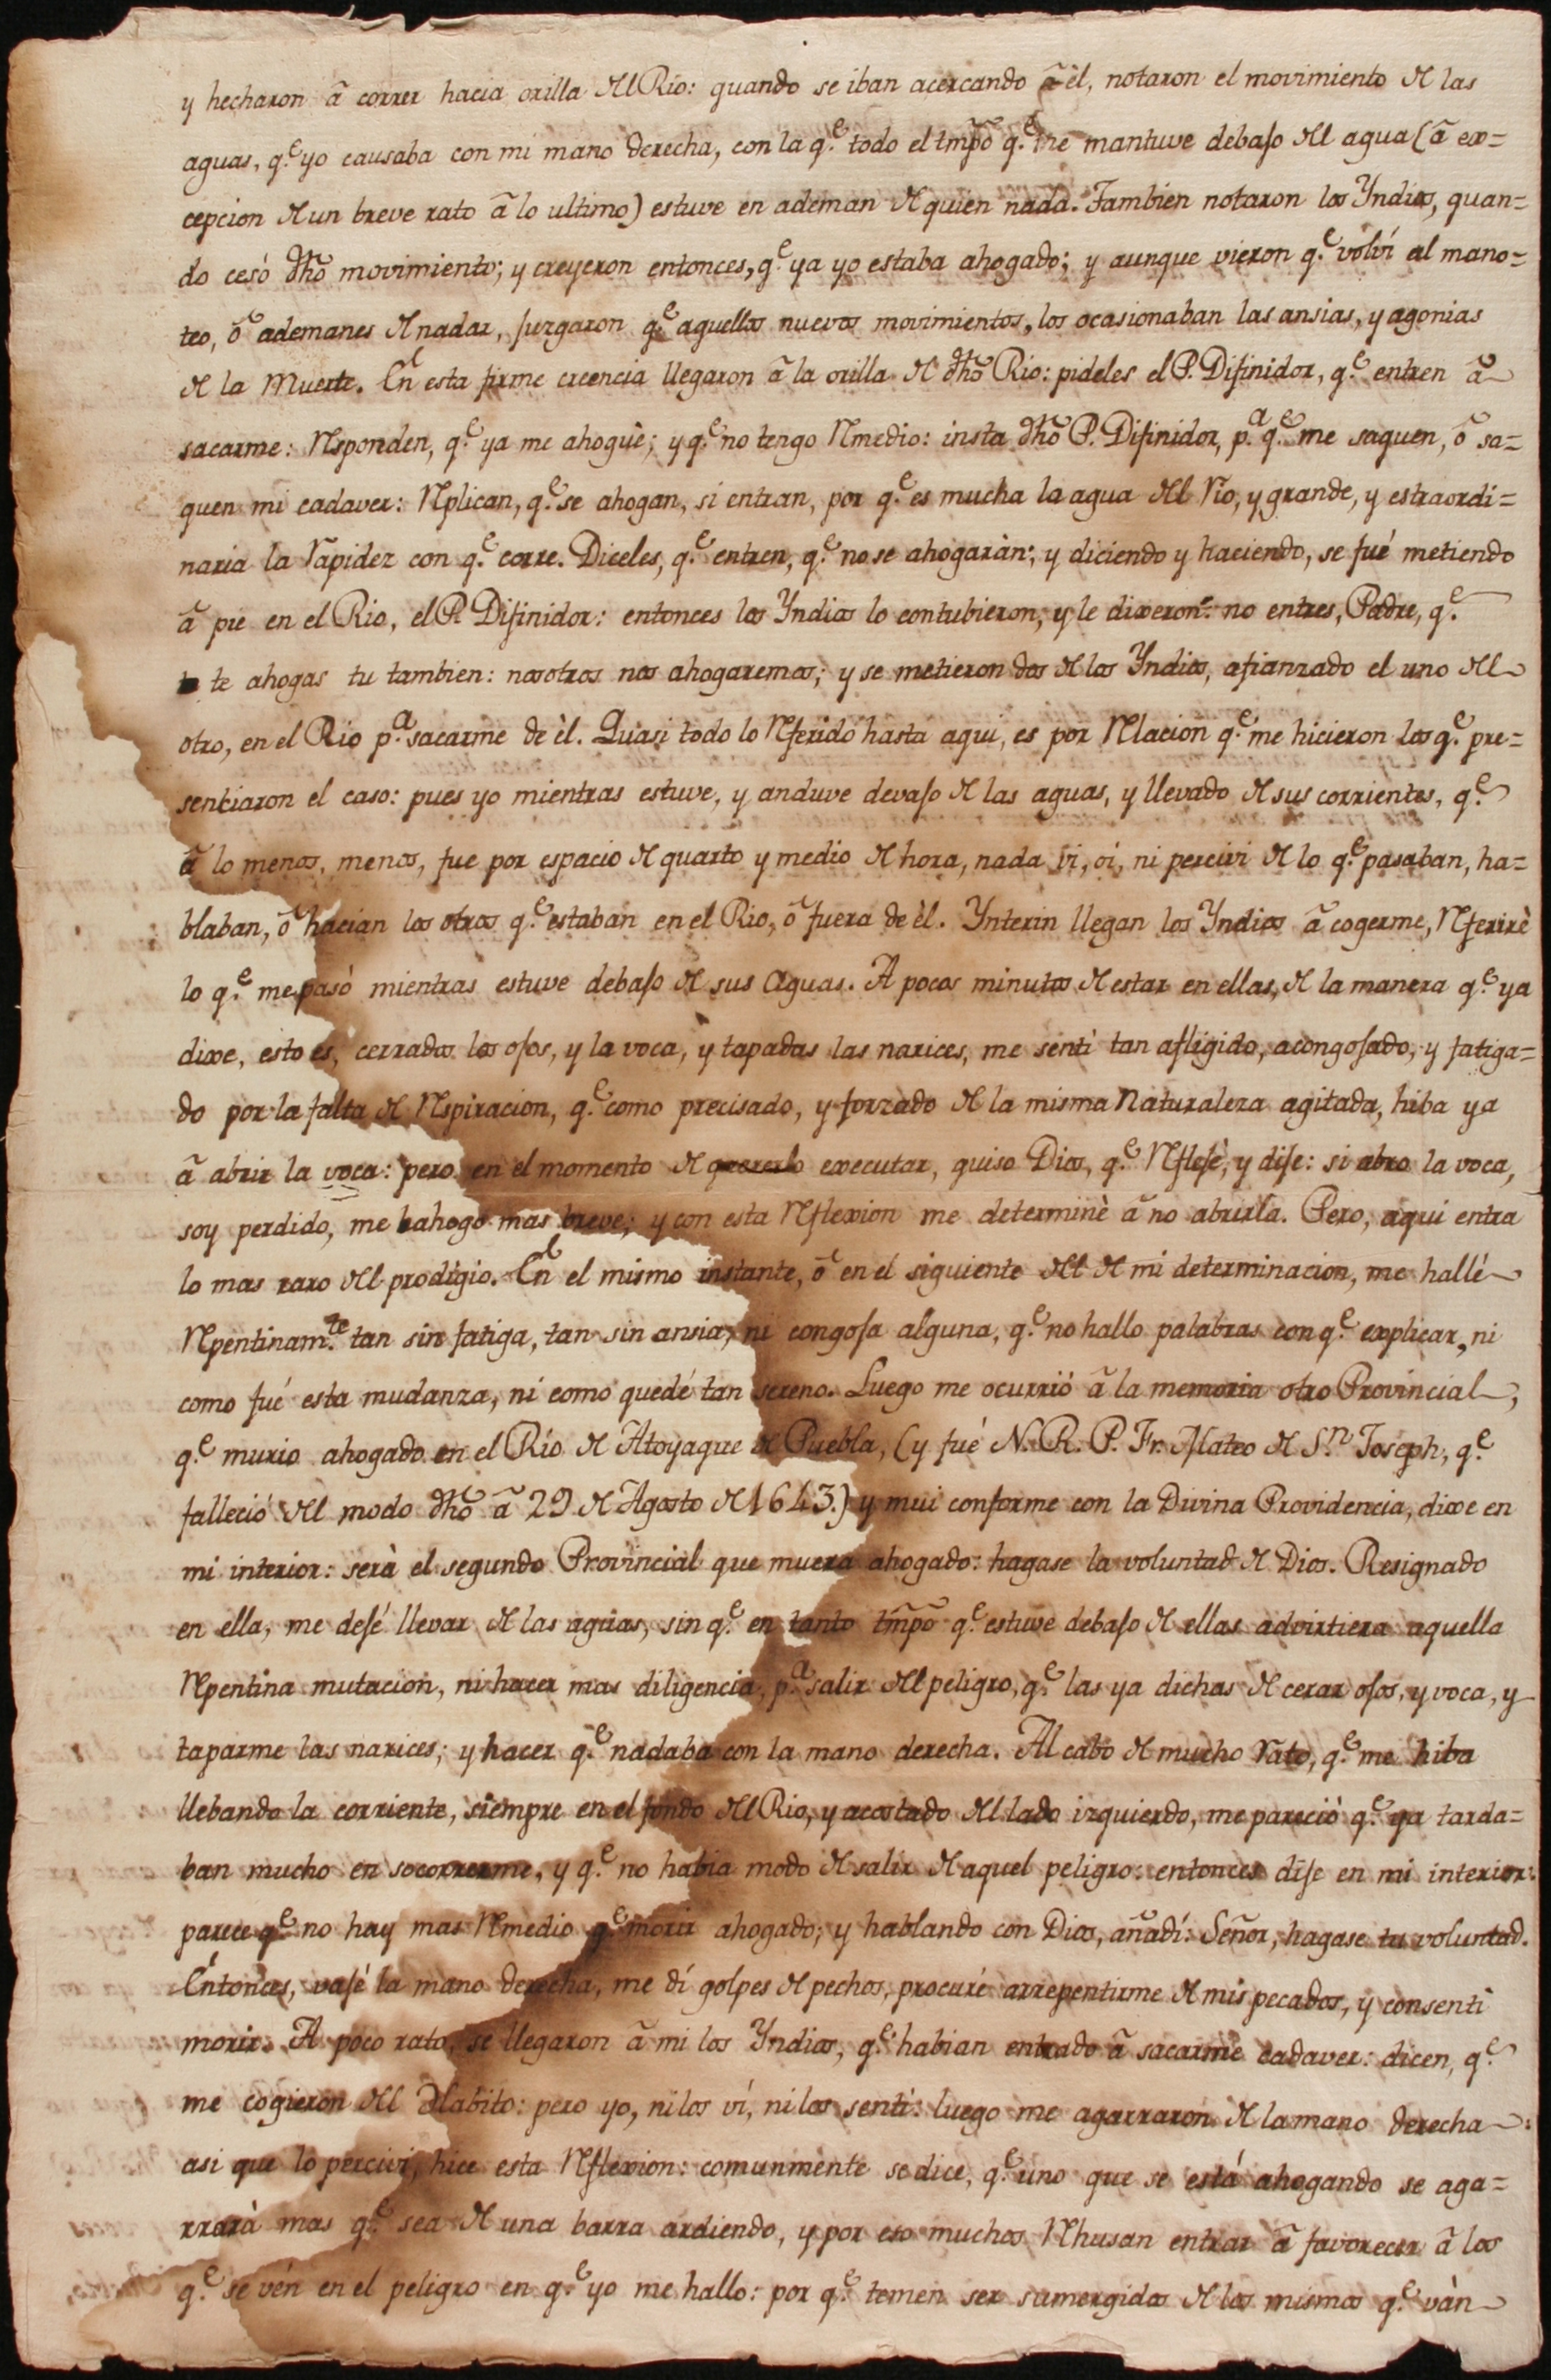 y hecharon à correr hacia orilla del Rio: quando se iban acercando à èl, notaron el movimiento de las
aguas, q.e yo causaba con mi mano derecha, con la q.e todo el tmpõ q.e me mantuve debajo del agua (à ex=
cepcion de un breve rato à lo ultimo) estuve en ademan de quien nada. Tambien notaron los Yndios, quan=
do cesò dhõ movimiento; y creyeron entonces, q.e ya yo estaba ahogado; y aunque vieron q.e volví al mano=
teo, ò ademanes de nadar, juzgaron q.e aquellos nuevos movimientos, los ocasionaban las ansias, y agonias
de la Muerte. En esta firme creencia llegaron à la orilla de dhõ Rio: pideles el P. Difinidor, q.e entren à
sacarme: Responden, q.e ya me ahoguè; y q.e no tengo Remedio: insta dhõ P. Difinidor, p.a q.e me saquen, ò sa=
quen mi cadaver: Replican, q.e se ahogan, si entran, por q.e es mucha la agua del Rio, y grande, y estraordi=
naria la rapidez con q.e corre. Diceles, q.e entren, q.e no se ahogaràn: y diciendo y haciendo, se fué metiendo
à pie en el Rio, el P. Difinidor: entonces los Yndios lo contubieron, y le dixeron: no entres, Padre, q.e
te ahogas tu tambien: nosotros nos ahogaremos; y se metieron dos de los Yndios, afianzado el uno del
otro, en el Rio p.a sacarme de èl. Quasi todo lo Referido hasta aqui, es por Relacion q.e me hicieron los q.e pre=
senciaron el caso: pues yo mientras estuve, y anduve devajo de las aguas, y llevado de sus corrientes, q.e
à lo menos, menos, fue por espacio de quarto y medio de hora, nada vi, oí, ni percivi de lo q.e pasaban, ha=
blaban, ò hacian los otros q.e estaban en el Rio, ò fuera de èl. Ynterin llegan los Yndios à cogerme, Referirè
lo q.e me pasò mientras estuve debajo de sus Aguas. A pocos minutos de estar en ellas, de la manera q.e ya
dixe, esto es, cerrados los ojos, y la voca, y tapadas las narices, me sentì tan afligido, acongojado, y fatiga=
do por la falta de Respiracion, q.e como precisado, y forzado de la misma Naturaleza agitada, hiba ya
à abrir la voca: pero en el momento de quererlo executar, quiso Dios, q.e Reflejè, y dije: si abro la voca,
soy perdido, me ahogo mas breve; y con esta Reflexion me determinè à no abrirla. Pero, aqui entra
lo mas raro del prodigio. En el mismo instante, ò en el siguiente del de mi determinacion, me hallé
Repentinam.te tan sin fatiga, tan sin ansia, ni congoja alguna, q.e no hallo palabras con q.e explicar, ni
como fué esta mudanza, ni como quedé tan sereno. Luego me ocurrió à la memoria otro Provincial,
q.e murio ahogado en el Río de Atoyaque de Puebla, (y fué N. R. P. Fr. Mateo de S.n Joseph, q.e
falleció del modo dhõ à 29 de Agosto de 1643.) y mui conforme con la Divina Providencia, dixe en
mi interior: serà el segundo Provincial que muera ahogado: hagase la voluntad de Dios. Resignado
en ella, me dejé llevar de las aguas, sin q.e en tanto tmpõ q.e estuve debajo de ellas advirtiera aquella
Repentina mutacion, ni hacer mas diligencia, p.a salir del peligro, q.e las ya dichas de cerar ojos, y voca, y
taparme las narices; y hacer q.e nadaba con la mano derecha. Al cabo de mucho rato, q.e me hiba
llebando la corriente, siempre en el fondo del Rio, y acostado del lado izquierdo, me pareciò q.e ya tarda=
ban mucho en socorrerme, y q.e no habia modo de salir de aquel peligro: entonces dije en mi interior:
parece q.e no hay mas Remedio q.e morir ahogado; y hablando con Dios, añadí: Señor, hagase tu voluntad.
Entonces, vajé la mano derecha, me dí golpes de pechos, procuré arrepentirme de mis pecados, y consentì
morir. A poco rato, se llegaron à mi los Yndios, q.e habian entrado à sacarme cadaver: dicen, q.e
me cogieron del Habito: pero yo, ni los ví, ni los sentì: luego me agarraron de la mano derecha:
asi que lo percivi, hice esta Reflexion: comunmente se dice, q.e uno que se está ahogando se aga=
rrarà mas q.e sea de una barra ardiendo, y por eso muchos Rehusan entrar à favorecer à los
q.e se vén en el peligro en q.e yo me hallo: por q.e temen ser sumergidos de los mismos q.e vàn